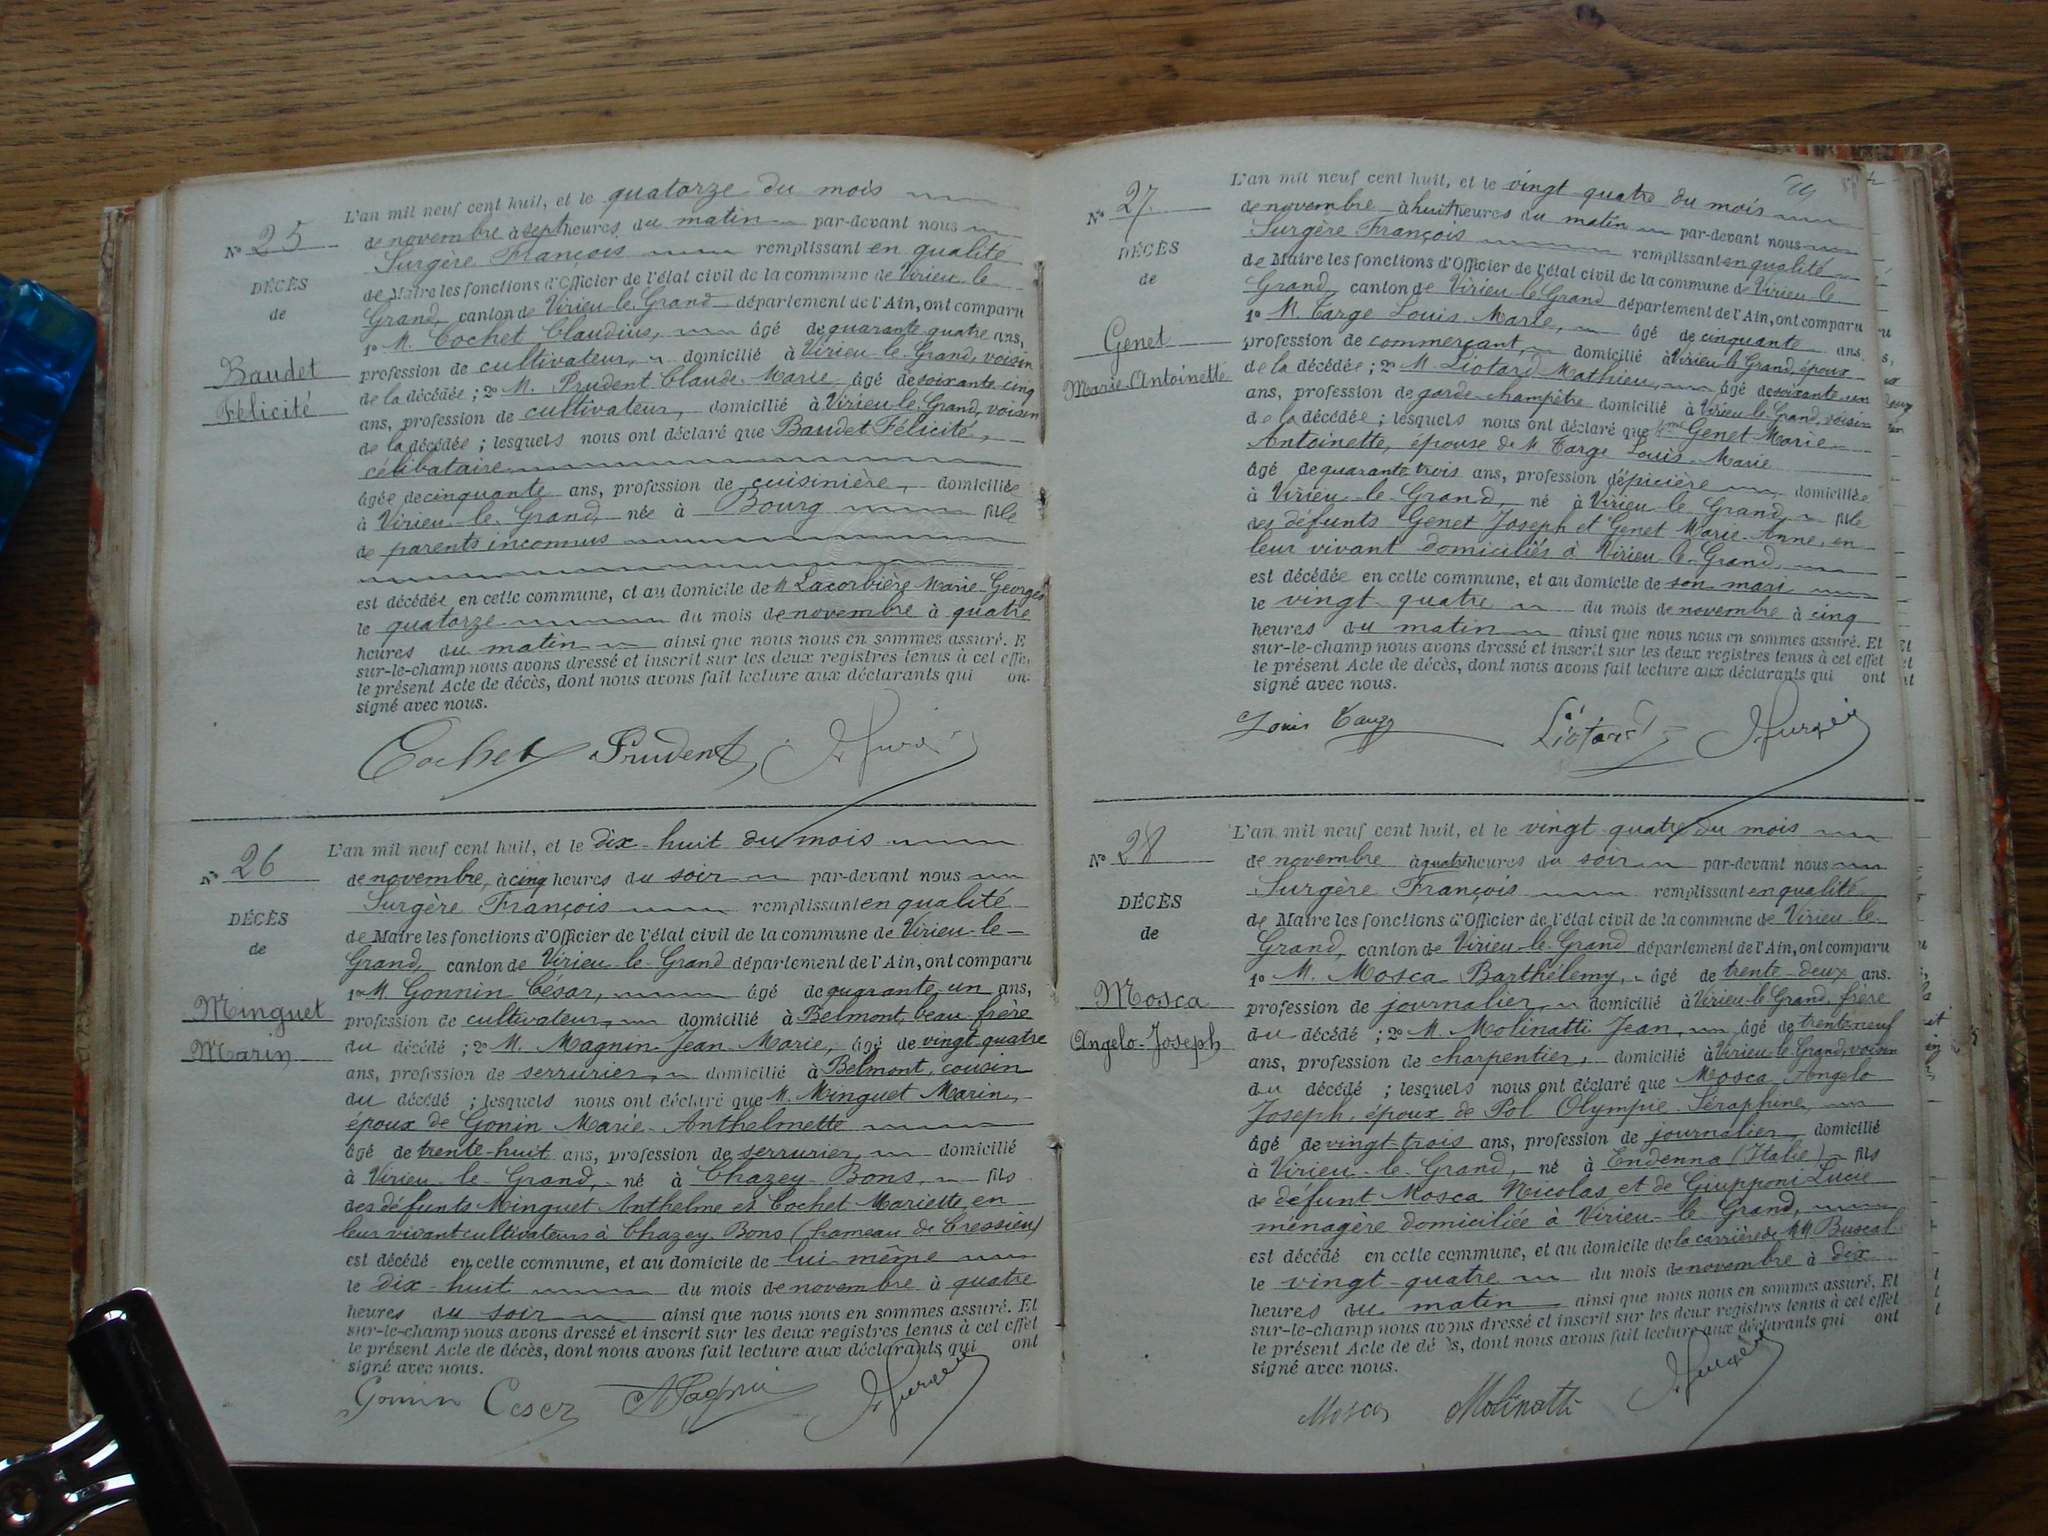 N° 25
DÉCÈS
de
Baudet
Félicité
L'an mil neuf cent huit, et le quatorze du mois
de novembre à sept heures du matin par-devant nous
Surgère François remplissant en qualité
de Maire les fonctions d'Officier de l'état civil de la commune de Virieu-le-
Grand, canton de Virieu-le-Grand département de l'Ain, ont comparu
1° M. Cochet Claudius, âgé de quarante quatre ans,
profession de cultivateur, domicilié à Virieu-le-Grand, voisin
de la décédée ; 2° M. Prudent Claude-Marie âgé de soixante cinq
ans, profession de cultivateur, domicilié à Virieu-le-Grand, voisin
de la décédée ; lesquels nous ont déclaré que Baudet Félicité,
célibataire
âgée de cinquante ans, profession de cuisinière, domiciliée
à Virieu-le-Grand, née à Bourg fille
de parents inconnus
est décédée en cette commune, et au domicile de M Lacorbière Marie-Georges
le quatorze du mois de novembre à quatre
heures du matin ainsi que nous nous en sommes assuré. E
sur-le-champ nous avons dressé et inscrit sur les deux registres tenus à cet effe
le présent Acte de décès, dont nous avons fait lecture aux déclarants qui on
signé avec nous.
Cochet Prudent
N° 26
DÉCÈS
de
Minguet
Marin
L'an mil neuf cent huit, et le dix-huit du mois
de novembre, à cinq heures du soir par-devant nous
Surgère François remplissant en qualité
de Maire les fonctions d'Officier de l'état civil de la commune de Virieu-le-
Grand, canton de Virieu-le-Grand département de l'Ain, ont comparu
1° M Gonnin César, âgé de quarante un ans,
profession de cultivateur, domicilié à Belmont, beau-frère
du décédé ; 2° M. Magnin Jean-Marie, âgé de vingt quatre
ans, profession de serrurier, domicilié à Belmont, cousin
du décédé ; lesquels nous ont déclaré que M. Minguet Marin,
époux de Gonin Marie-Anthelmette
âgé de trente-huit ans, profession de serrurier, domicilié
à Virieu-le-Grand, né à Chazey-Bons, fils
des défunts Minguet Anthelme et Cochet Mariette, en
leur vivant cultivateurs à Chazey Bons (hameau de Cressieu)
est décédé en cette commune, et au domicile de lui-même
le dix-huit du mois de novembre à quatre
heures du soir ainsi que nous nous en sommes assuré. Et
sur-le-champ nous avons dressé et inscrit sur les deux registres tenus à cet effet
le présent Acte de décès, dont nous avons fait lecture aux déclarants qui ont
signé avec nous.
Gonin Cesar Magnin
N° 27
DÉCÈS
de
Genet
Marie-Antoinette
L'an mil neuf cent huit, et le vingt-quatre du mois
de novembre à huit heures du matin par-devant nous
Surgère François remplissant en qualité
de Maire les fonctions d'Officier de l'état civil de la commune de Virieu-le-
Grand, canton de Virieu-le-Grand département de l'Ain, ont comparu
1° M. Targe Louis-Marie, âgé de cinquante ans
profession de commerçant, domicilié à Virieu-le-Grand, époux
de la décédée ; 2° M. Liotard Mathieu, âgé de soixante-un
ans, profession de garde-champêtre domicilié à Virieu-le-Grand, voisin
de la décédée ; lesquels nous ont déclaré que Genet Marie-
Antoinette, épouse de M Targe Louis-Marie
âgé de quarante trois ans, profession d'épicière domiciliée
à Virieu-le-Grand, né à Virieu-le-Grand fille
des défunts Genet Joseph et Genet Marie-Anne, en
leur vivant domiciliés à Virieu-le-Grand,
est décédée en cette commune, et au domicile de son mari
le vingt-quatre du mois de novembre à cinq
heures du matin ainsi que nous nous en sommes assuré. Et
sur-le-champ nous avons dressé et inscrit sur les deux registres tenus à cet effet
le présent Acte de décès, dont nous avons fait lecture aux déclarants qui ont
signé avec nous.
Louis Targe Liotard Surgère
N° 28
DÉCÈS
de
Mosca
Angelo-Joseph
L'an mil neuf cent huit, et le vingt-quatre du mois
de novembre à quatre heures du soir par-devant nous
Surgère François remplissant en qualité
de Maire les fonctions d'Officier de l'état civil de la commune de Virieu-le-
Grand, canton de Virieu-le-Grand département de l'Ain, ont comparu
1° M. Mosca Barthélemy, âgé de trente-deux ans.
profession de journalier, domicilié à Virieu-le-Grand, frère
du décédé ; 2° M. Molinatti Jean, âgé de trente neuf
ans, profession de charpentier, domicilié à Virieu-le-Grand, voisin
du décédé ; lesquels nous ont déclaré que Mosca Angelo
Joseph, époux de Pol Olympie-Séraphine,
âgé de vingt-trois ans, profession de journalier domicilié
à Virieu-le-Grand, né à Endenna (Italie) fils
de défunt Mosca Nicolas et de Giupponi Lucie
ménagère domiciliée à Virieu-le-Grand,
est décédé en cette commune, et au domicile de la carrière de MM Buscal
le vingt-quatre du mois de novembre à dix
heures du matin ainsi que nous nous en sommes assuré. Et
sur-le-champ nous avons dressé et inscrit sur les deux registres tenus à cet effet
le présent Acte de dé s, dont nous avons fait lecture aux déclarants qui ont
signé avec nous.
Mosca Molinatti Surgère